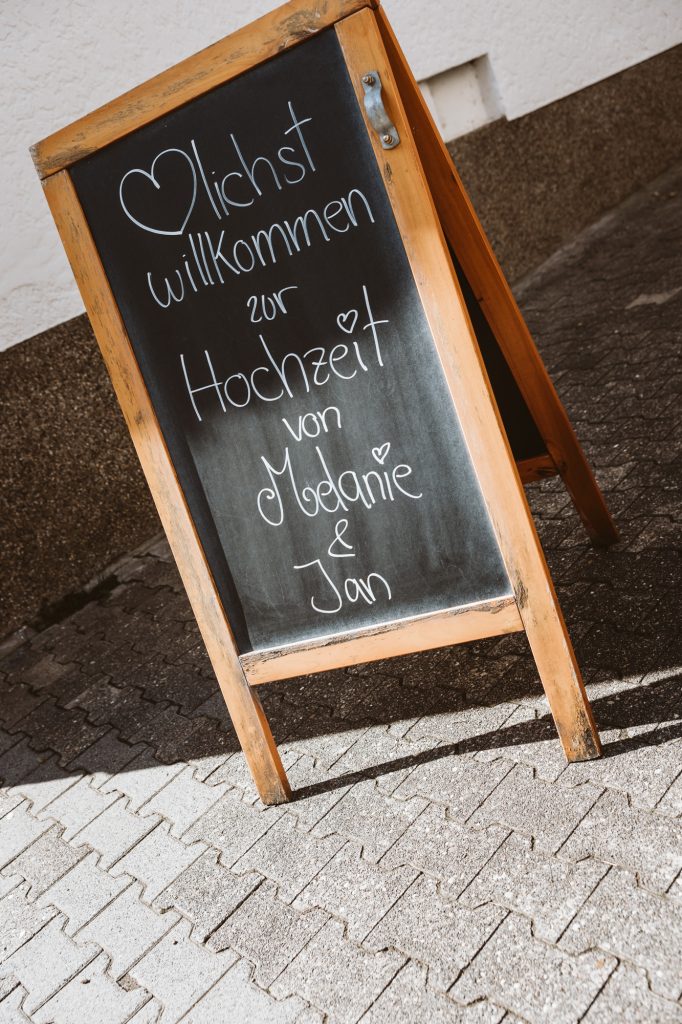 ♡lichst
willkommen
zur
Hochzeit
von
Melanie
&
Jan